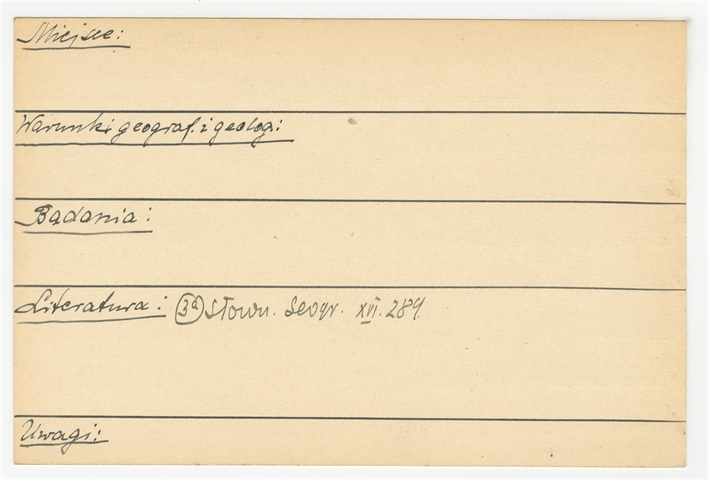 Miejsce:
Warunki geograf. i geolog.:
Badania:
Literatura: 3a Słown. Geogr. XVI. 289.
Uwagi: